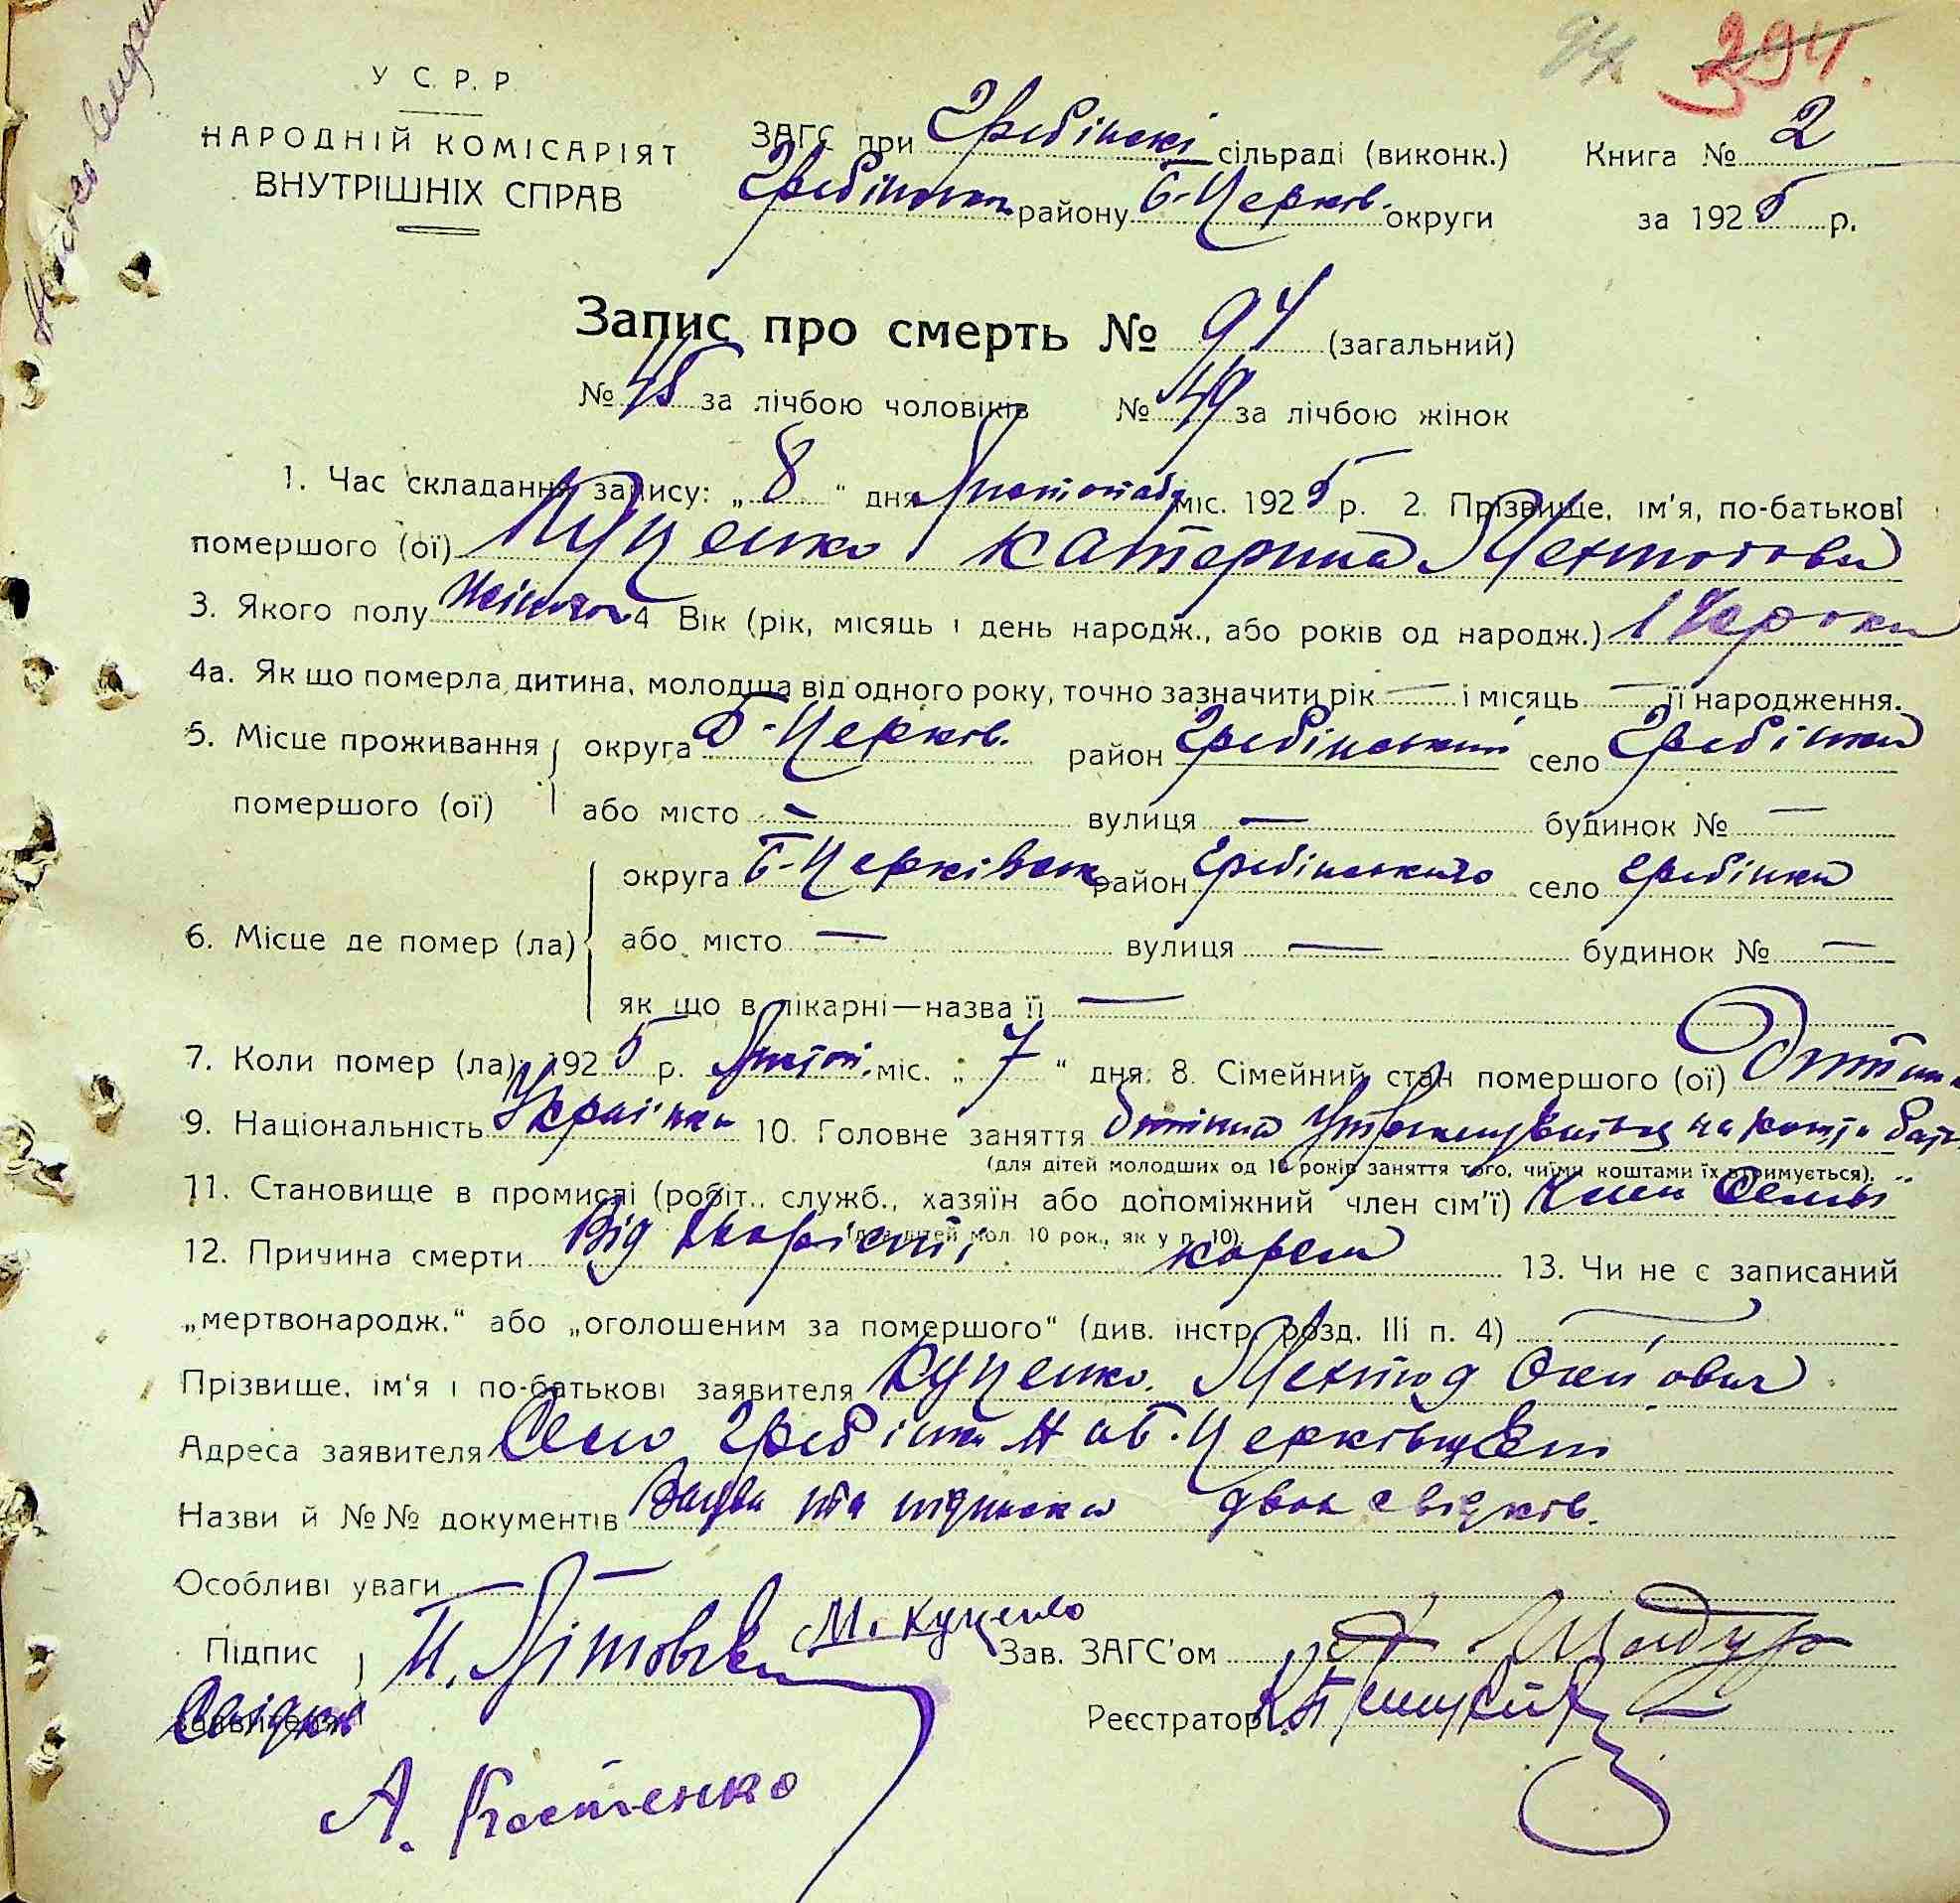 94 294.
У С. Р. Р.
НАРОДНІЙ КОМІСАРІЯТ
ВНУТРІШНІХ СПРАВ
ЗАГС при Гребінскі сільраді (виконк.) Книга № 2
району Б-Церків. округи за 1925 р.
Запис про смерть № 94 (загальний)
№ 45 за лічбою чоловіків № 49 за лічбою жінок
1. Час складання запису: „ 8 “ дня Листопада міс. 1925 р. 2. Прізвище, ім'я, по-батькові
помершого (ої) Куценко Катерина
3. Якого полу Жіночого 4 Вік (рік, місяць і день народж., або років од народж.) роки
4а. Як що померла дитина, молодша від одного року, точно зазначити рік — і місяць — її народження.
5. Місце проживання округа Б-Церків. район Гребінський село Гребінки
помершого (ої) або місто — вулиця — будинок № —
округа Б-Церківськ район Гребінського село Гребінки
6. Місце де помер (ла) або місто — вулиця — будинок № —
як що в лікарні—назва її —
7. Коли помер (ла) 1925 р. Листоп. міс. „ 7 “ дня. 8. Сімейний стан помершого (ої) Дитина
9. Національність Українка 10. Головне заняття на кошти
(для дітей молодших од 10 років заняття того, чиїми коштами їх утримується).
11. Становище в промислі (робіт., служб., хазяїн або допоміжний член сім'ї) Член Семьї
(для дітей мол. 10 рок., як у п. 10).
12. Причина смерти Від хворости корем 13. Чи не є записаний
„мертвонародж.“ або „оголошеним за помершого“ (див. інстр. розд. III п. 4) —
Прізвище, ім'я і по-батькові заявителя Куценко
Адреса заявителя Село Гребінки на Б.Церківщені
Назви й №№ документів Заява та підписка двох свідків.
Особливі уваги — —
Підпис М. Куценко Зав. ЗАГС'ом
заявителя Свідки Реєстратор
А. Костенко